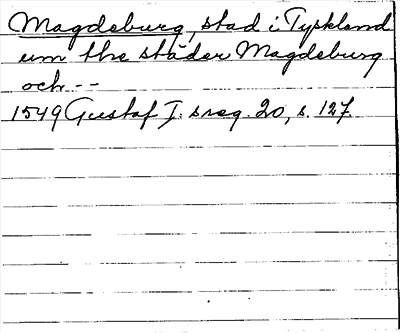 Magdeburg, stad i Tyskland
um the städer Magdeburg
och --
1549 Gustaf I:s reg. 20, s. 127.